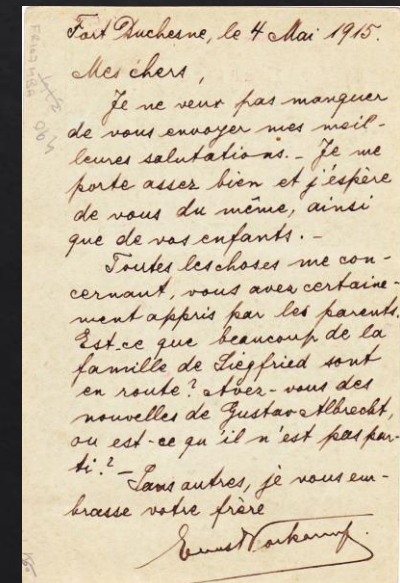 Fort Duchesne, le 4 Mai 1915.
Mes chers,
Je ne veux pas manquer
de vous envoyer mes meil-
leures salutations. - Je me
porte assez bien et j'éspère
de vous du même, ainsi
que de vos enfants. -
Toutes les choses me con-
cernant, vous avez certaine-
ment appris par les parents.
Est-ce que beaucoup de la
famille de Siegfried sont
en route? Avez-vous des
nouvelles de Gustav Albrecht,
ou est-ce qu'il n'est pas par-
ti? -
Sans autres, je vous em-
brasse votre frère
Ernst